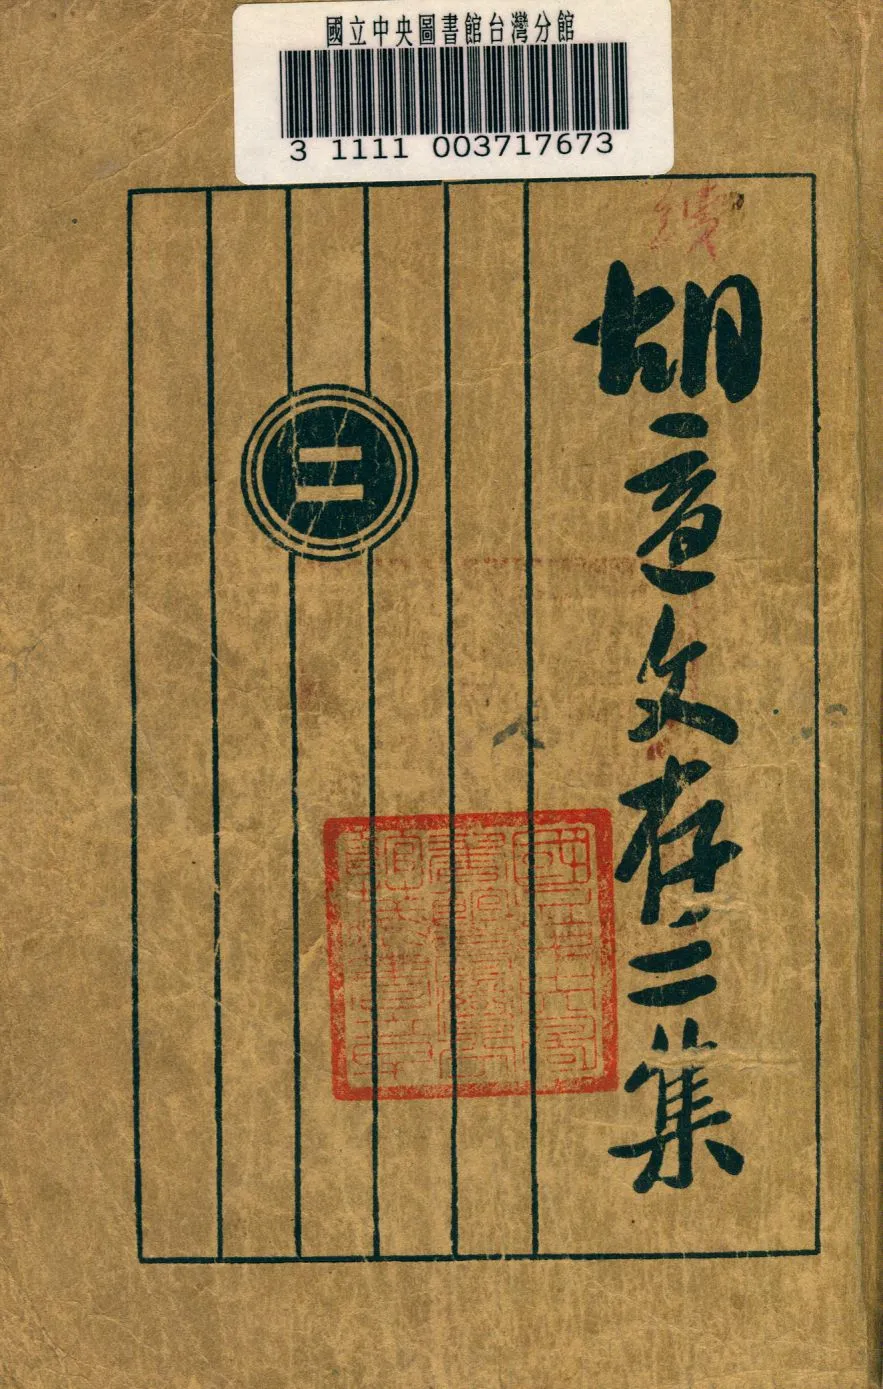 國立中央圖書館台灣分館
3 1111 003717673
胡適文存二集
二